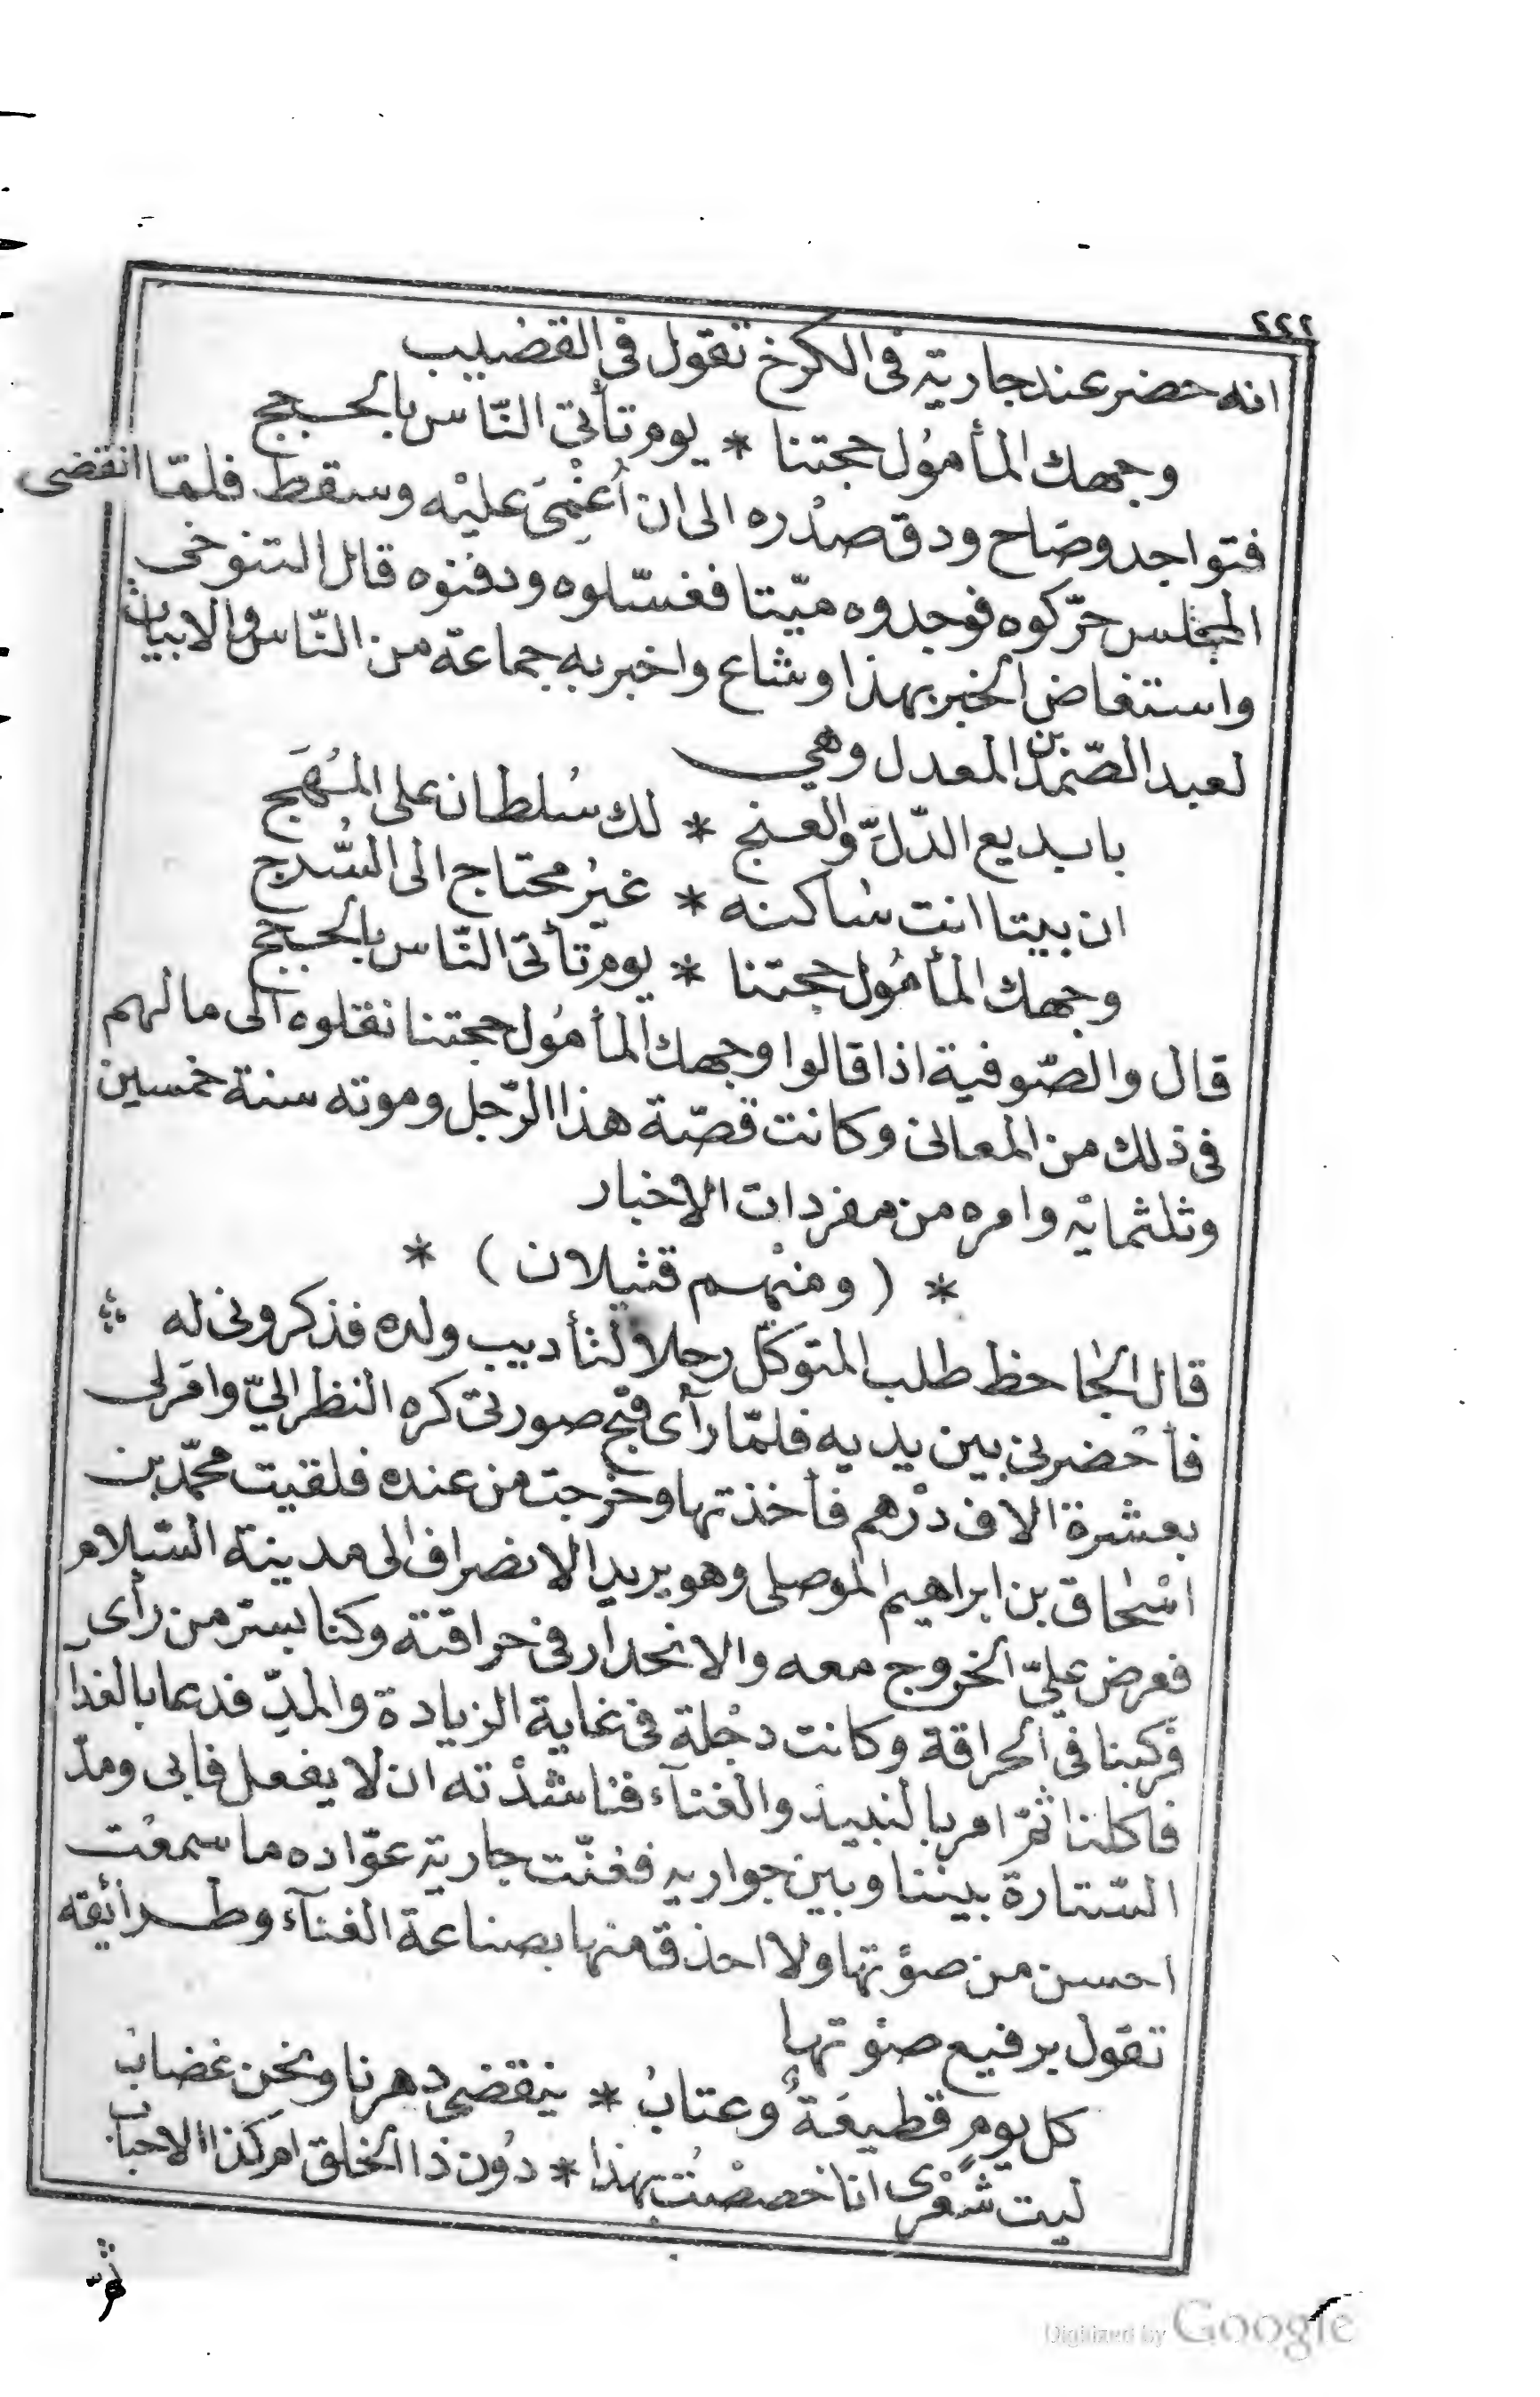 ٢٢٢
انه حضر عند جارية فى الكرخ تقول فى القضيب
وجهك المأمول حجتنا * يوم تأتى النّاس بالحجج
فتواجد وصاح ودق صدره الى ان أُغمِىَ عليه وسقط فلمّا انقضى
المجلس حرّكوه فوجدوه ميّتا فغسّلوه ودفنوه قال التنوخى
واستفاض الخبر بهذا وشاع واخبر به جماعة من النّاس والابيات
لعبد الصّمد بن المعدل وهي
يا بديع الدّلّ والغنج * لك سُلطان على المُهَج
ان بيتا انت ساكنه * غير محتاج الى السُّرج
وجهك المأمُول حجتنا * يوم تأتى النّاس بالحجج
قال والصّوفية اذا قالوا وجهك المأمُول حجتنا نقلوه الى ما لهم
فى ذلك من المعانى وكانت قصّة هذا الرّجل وموته سنة خمسين
وثلثماية وامره من مفردات الاخبار
* ( ومنهم قتيلان ) *
قال الجاحظ طلب المتوكّل رجلا لتأديب ولده فذكرونى له
فأحضرنى بين يديه فلمّا رأى قبح صورتى كره النظر اليّ وامر لى
بعشرة الاف درهم فأخذتها وخرجت من عنده فلقيت محمّد بن
اسْحاق بن ابراهيم الموصلى وهو يريد الانصراف الى مدينة السّلام
فعرض عليّ الخروج معه والانحدار فى حراقته وكنا بسرّ من رأى
فركبنا فى الحراقة وكانت دجْلة فى غاية الزيادة والمدّ فدعا بالغدا
فاكلنا ثمّ امر بالنبيذ والغنآء فناشدْته ان لا يفعل فابى ومدّ
السّتارة بيننا وبين جواريه فغنّت جارية عوّاده ما سمعْت
احسن من صوْتها ولا احذق منها بصناعة الغنآء وطرائقه
تقول برفيع صوْتها
كل يومٍ قطيعَةٌ وعتابُ * ينقضى دهرنا ونحن غضابُ
ليت شعْرى انا خصصْتُ بهذا * دُون ذا الخلق ام كذا الاحباب
ثمّ
Digitized by Google